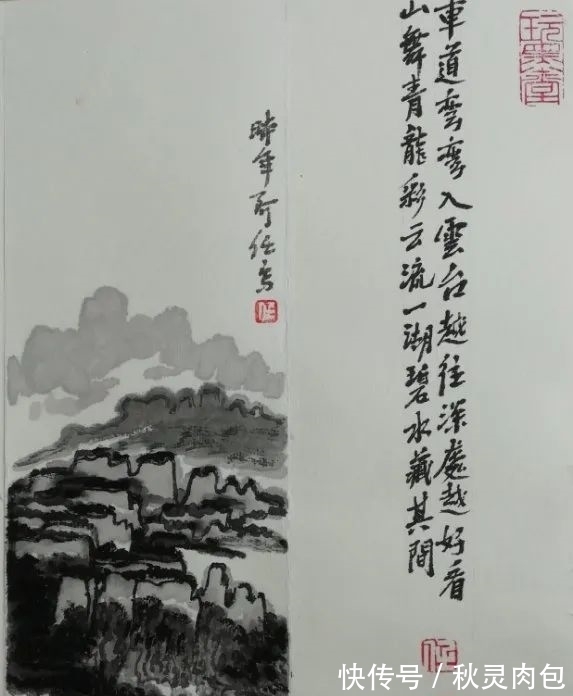 玩墨堂
車道彎彎入雲台越往深處越好看
山舞青龍彩云流一湖碧水藏其間
任
時年任寫
任
快传号 / 秋灵肉包